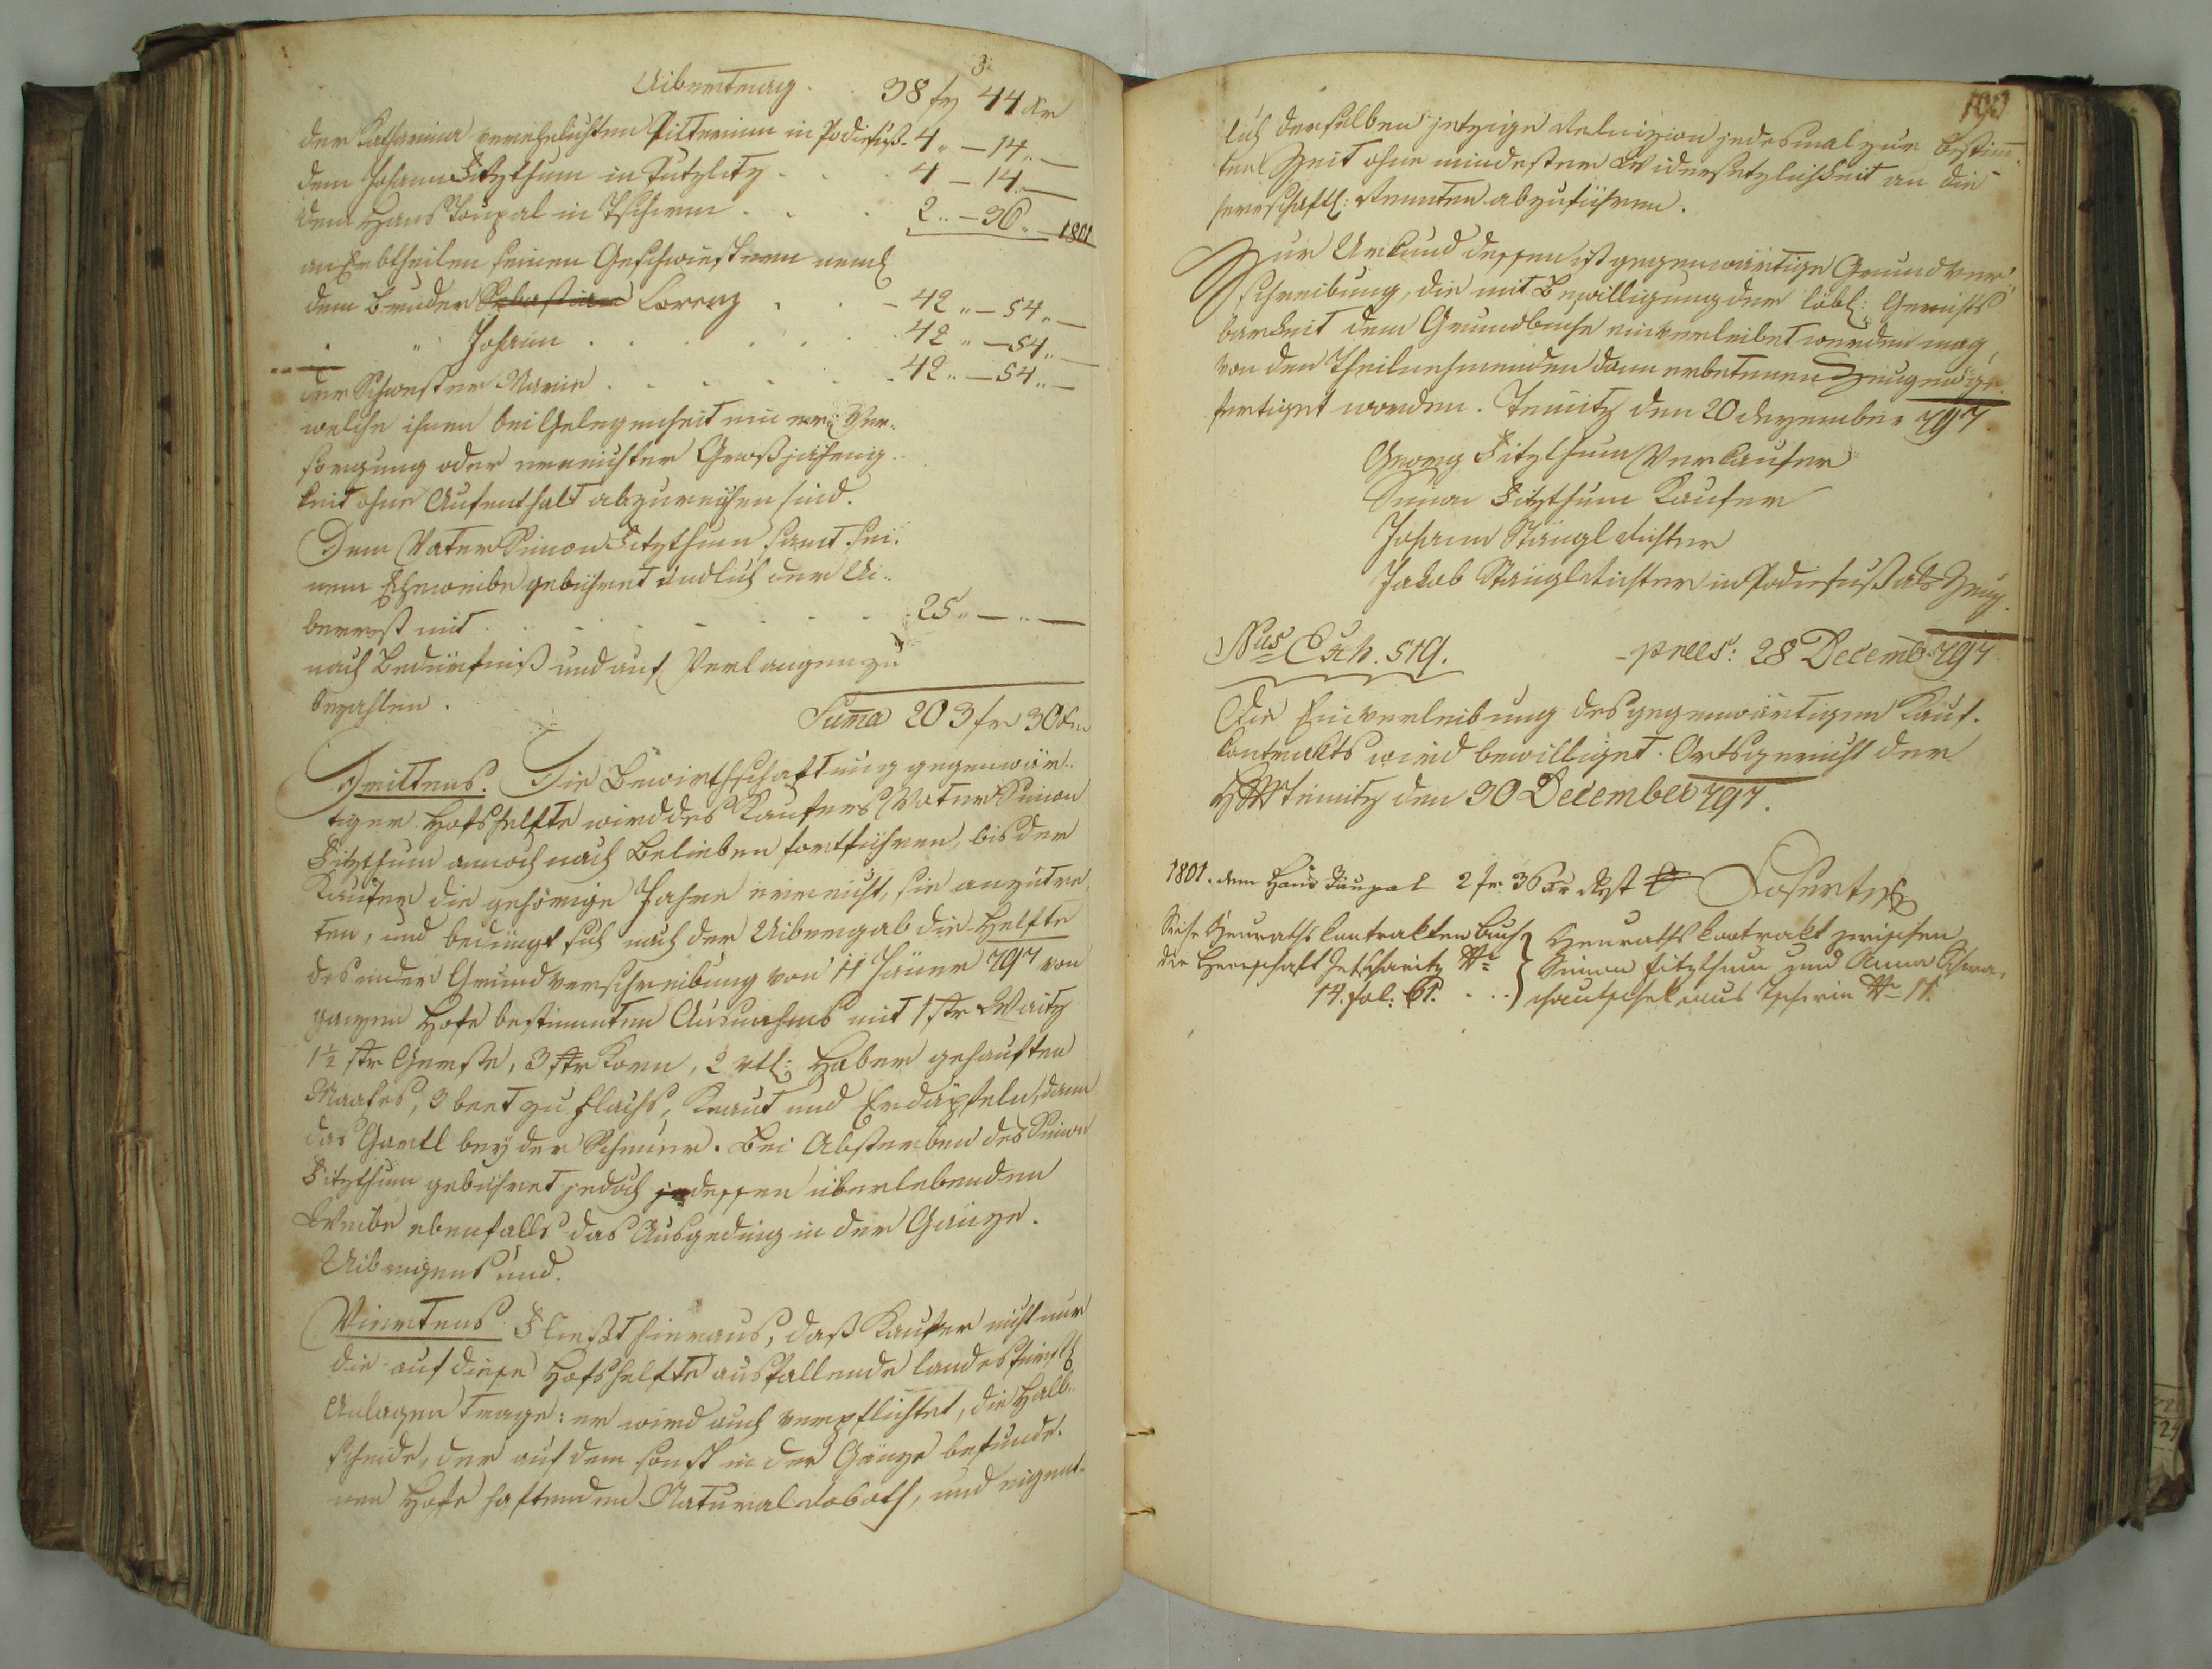 Uibertrag. 38 fr 44 xr
3
der Katharina verehelichten Pitterinn in Podiefuß. 4 „ — 14 „ —
dem Johann Fitzthum in Putzlitz . . . 4 — 14 „ —
dem Hans Taupal in Tschirm . . . 2 „ — 36 „ — 1801
an Erbtheilen seinen Geschwistern neml:
dem Bruder Sebastian Lorenz . . . 42 „ — 54 „ —
„ Johann . . . . . . 42 „ — 54 „ —
der Schwester Marie . . . . . 42 „ — 54 „ —
welche ihnen bei Gelegenheit einer Ver-
sorgung oder erreichter Großjährig-
keit ohne Aufenthalt abzureichen sind.
Dem Vater Simon Fitzthum samt sei-
nem Eheweibe gebühret endlich der Ui-
berrest mit . . . . . . . 25 „ — „ —
nach Bedürfniß und auf Verlangen zu
bezahlen.
Suma 203 fr 30 xr
Drittens. Die Bewirthschaftung gegenwär-
tiger Hofshelfte wird des Kaufers Vater Simon
Fitzthum annoch nach Belieben fortführen, bis der
Kaufer die gehörige Jahre erreicht, sie anzutre-
ten, und bedingt sich nach der Uibergab die Helfte
des in der Grundverschreibung von 11 Jäner 797 von
ganzen Hofe bestimmten Ausnahms mit 1 str Waitz
1½ str Gerste, 3 str Korn, 2 vtl: Haber gehauften
Maaßes, 3 beet zu Flachs, Kraut und Erdäpfeln, dann
das Gartl bey der Scheuer. Bei Absterben des Simon
Fitzthum gebühret jedoch dessen überlebenden
Weibe ebenfalls das Ausgeding in der Gänze.
Uibrigens und
Viertens Fließt hieraus, daß Kaufer nicht nur
die auf diese Hofshelfte ausfallende landesfürstl:
Anlagen trage: er wird auch verpflichtet, die Halb-
scheide, der auf dem sonst in der Gänze befunde-
nen Hofe haftenden Natural Roboth, und eigent-
190
lich derselben jetzige Reluizion jedesmal zur bestim-
ten Zeit ohne mindester Widersetzlichkeit an die
herrschaftl: Renten abzuführen.
Zur Urkund dessen ist gegenwärtige Grundver-
schreibung, die mit Bewilligung der löbl: Gerichts-
barkeit dem Grundbuche einverleibet werden mag,
von den Theilnehmenden dann erbetenen Zeugen ge-
fertiget worden. Jeniz den 20 Dezember 797
Georg Fitzthum Verkaufer
Simon Fitzthum Kaufer
Johann Stängl Richter
Jakob Stängl Richter in Podiefuß als Zeug.
Nus Exh. 519. praes: 28 Decemb 797
Die Einverleibung des gegenwärtigen Kauf-
kontrakts wird bewilliget. Ortsgericht der
den 30 December 797.
1801. dem Hans Taupal 2 fr 36 xr Rest
Siehe Heuraths kontrakten Buch
der Herrschaft Jetscheritz Nr
14. fol: 61. . . .
Heuraths kontrakt zwischen
Simon Fitzthum und Anna
aus Tschirm Nr 11.